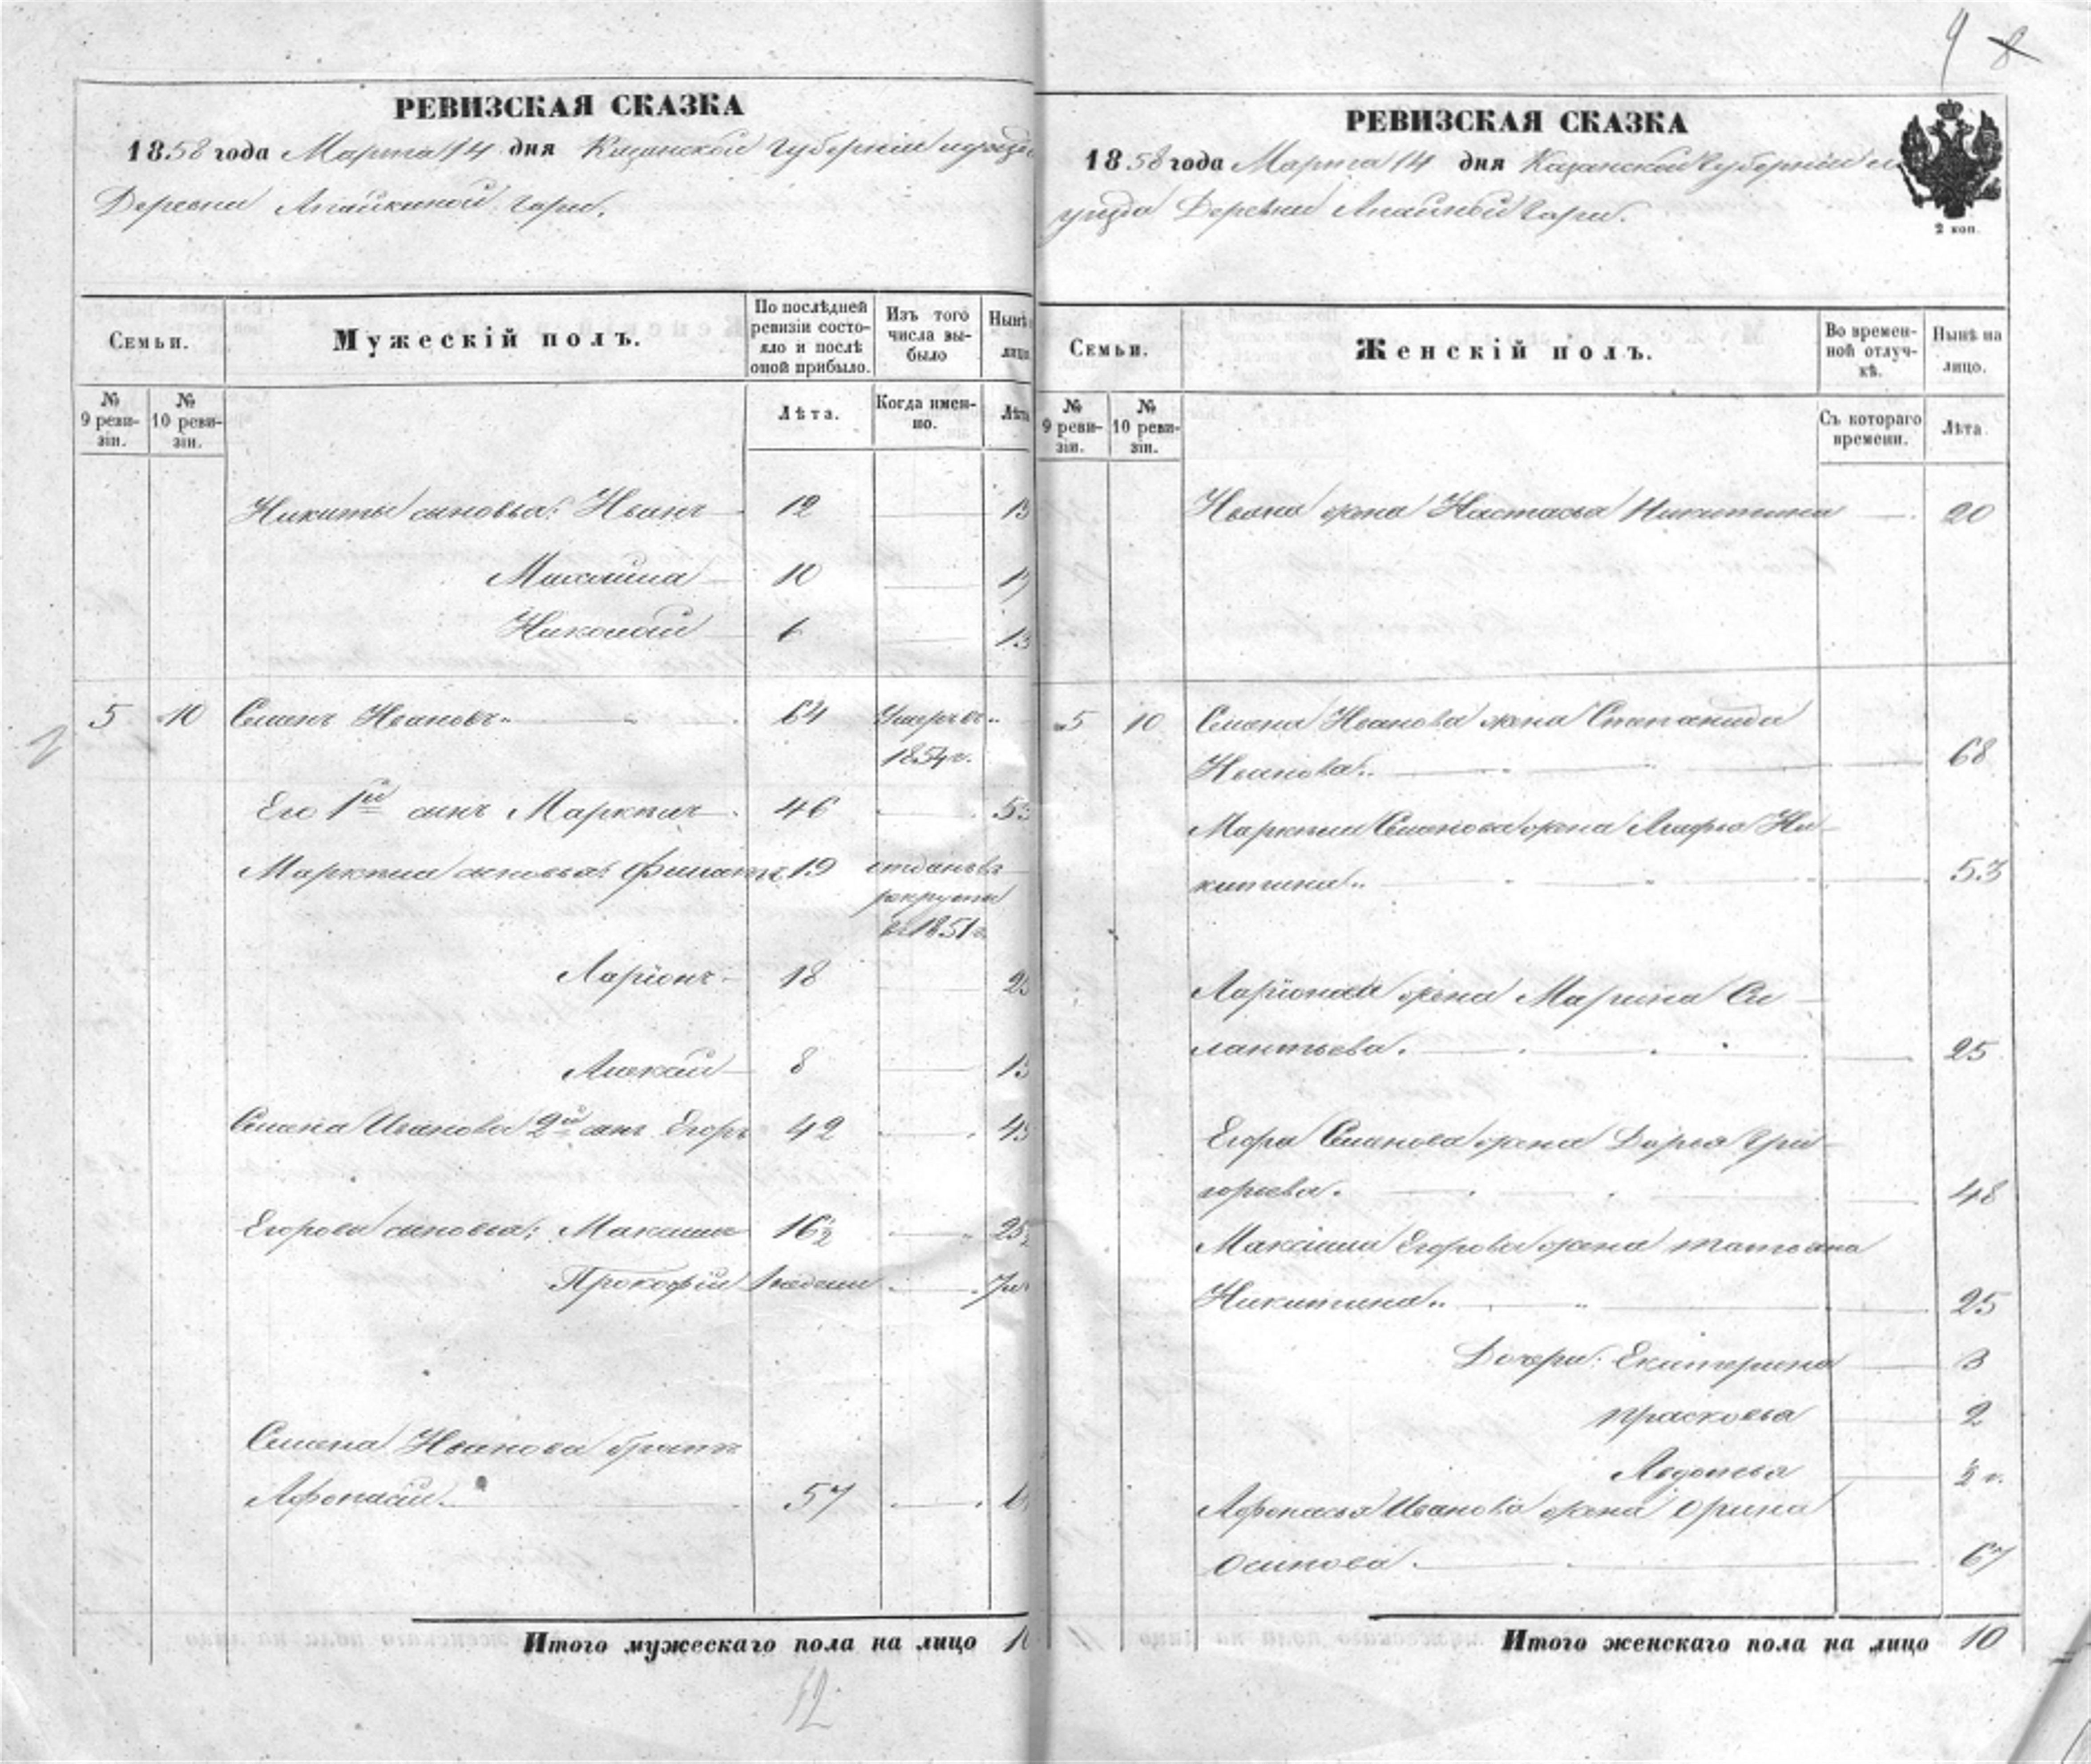 РЕВИЗСКАЯ СКАЗКА
1858 года Марта 14 дня Казанской губернии уезда
Деревни Апайкиной гари.
Семьи.
Мужескій полъ.
По послѣдней ревизіи состояло и послѣ оной прибыло.
Изъ того числа выбыло
Нынѣ
лицо
№ 9 ревизіи.
№ 10 ревизіи.
Лѣта.
Когда именно.
Лѣта
Никиты сыновья: Иванъ 12
Михайла 10
Николай 6
5 10 Семенъ Ивановъ 64 Умеръ въ
1854 г.
Его 1й сынъ Маркелъ 46
Маркела сыновья Филатъ 19 отданъ въ
рекруты
въ 1851 г.
Ларіонъ 18
Алексей 8
Семена Иванова 2й сынъ Егоръ 42
Егорова сыновья: Максимъ 16½
Прокофій недели
Семена Иванова братъ
Афонасій 57
Итого мужескаго пола на лицо 10
12
9 8
РЕВИЗСКАЯ СКАЗКА
1858 года Марта 14 дня Казанской губерніи
уезда Деревни Апайкиной гари.
2 коп.
Семьи.
Женскій полъ.
Во временной отлучкѣ.
Нынѣ на лицо.
№ 9 ревизіи.
№ 10 ревизіи.
Съ котораго времени.
Лѣта
Ивана жена Настасья Никитина 20
5 10 Семена Иванова жена Степанида
Иванова 68
Маркела Семенова жена Агафья Ни
китина 53
Ларіона жена Марина Си
лантьева. 25
Егора Семенова жена Дарья Гри
горьева. 48
Максима Егорова жена Татьяна
Никитина 25
Дочери: Екатерина 3
Прасковья 2
Авдотья ½ г.
Афонасья Иванова жена Орина
Осипова. 67
Итого женскаго пола на лицо 10